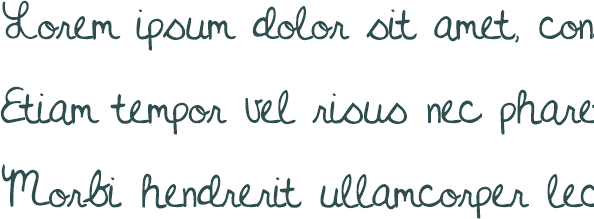 Lorem ipsum dolor sit amet, con
Etiam tempor vel risus nec phare
Morbi hendrerit ullamcorper lec